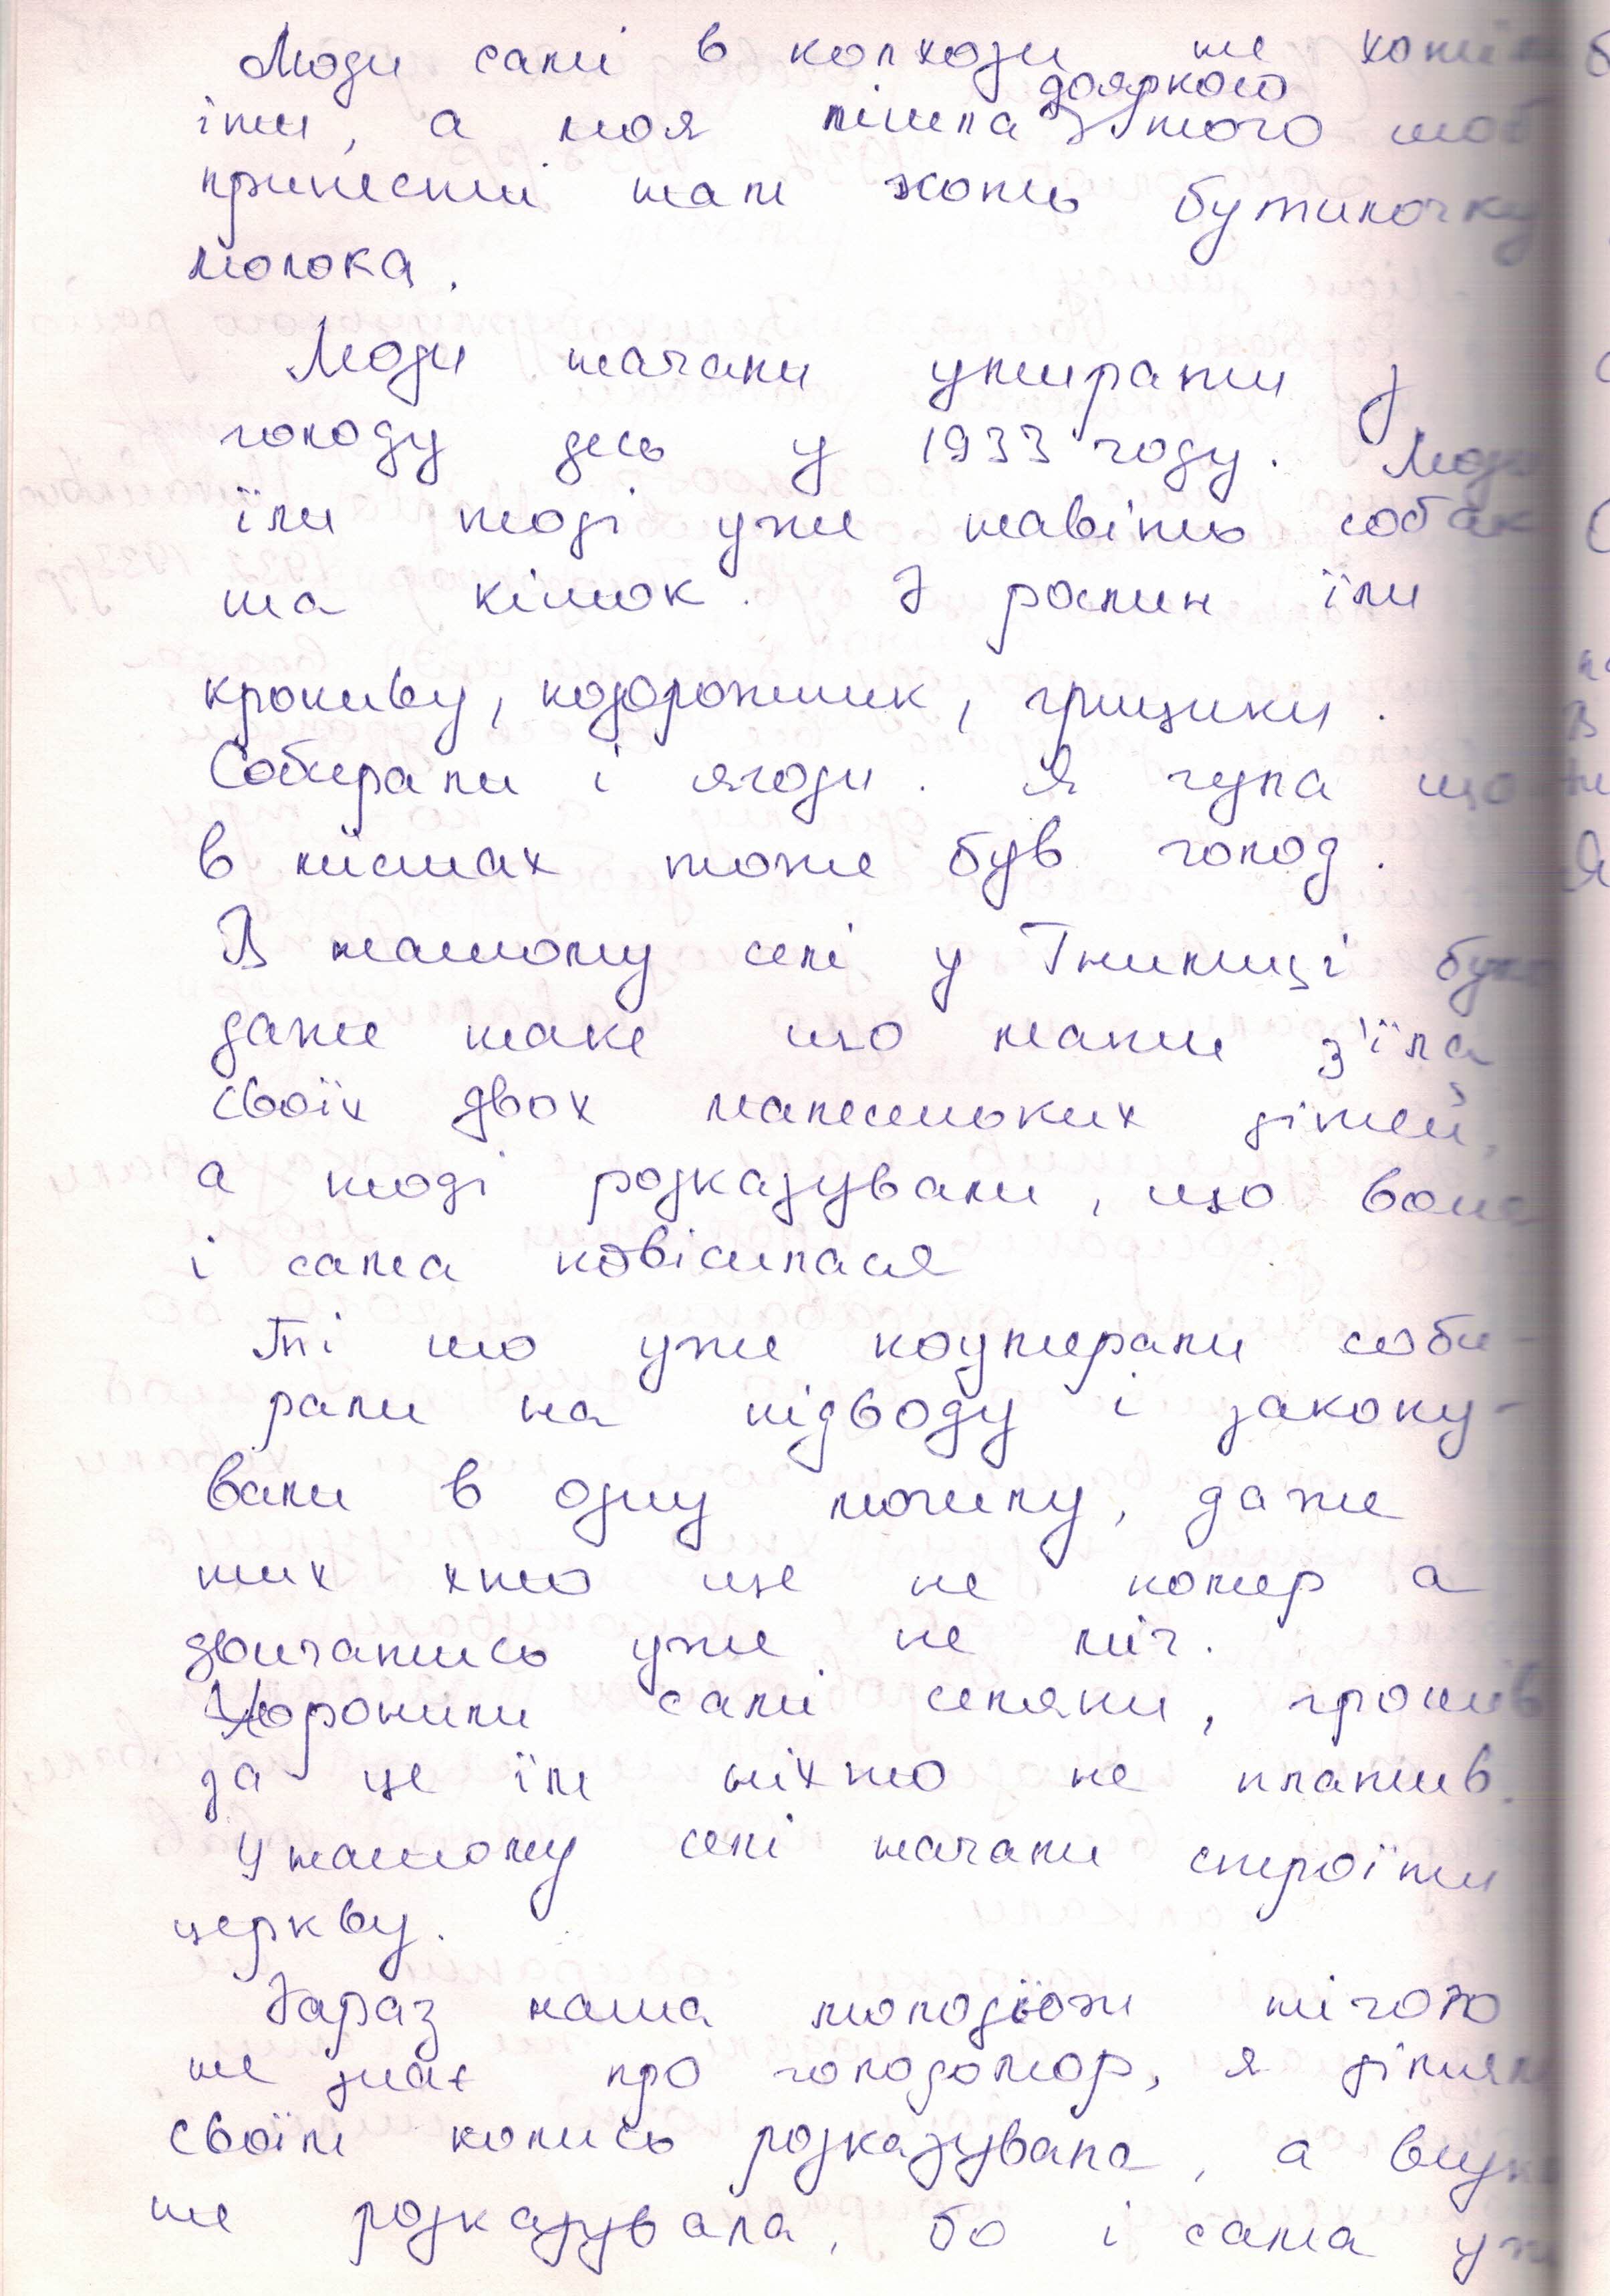 Люди самі в колхози не хотіли
дояркою
іти, а моя пішла з того шоб
принести нам хоть бутилочку
молока.
Люди начали умирати з
голоду десь у 1933 году. Люди
їли тоді уже навіть собак
та кішок. З рослин їли
кропиву, подорожник, грицики.
Собирали і ягоди. Я чула що
в містах тоже був голод.
В нашому селі у Гнилиці було
даже таке що мати з'їла
своїх двох малесеньких дітей,
а тоді розказували, що вона
і сама повісилася
Ті шо уже поумерали соби-
рали на підводу і закопу-
вали в одну могилу, даже
тих хто ще не помер а
двигатись уже не міг.
Хоронили самі селяни, грошів
за це їм ніхто не платив.
У нашому селі начали строїти
церкву.
Зараз наша молодьож нічого
не знає про голодомор, я дітям
своїм колись розказувала, а внукам
не розказувала, бо і сама уже